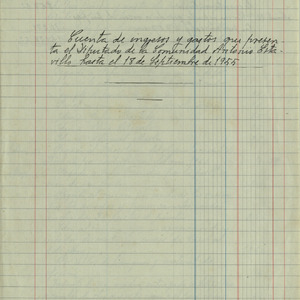 Cuenta de ingresos y gastos que presen-
ta el Diputado de la Comunidad Antonio Este-
villo hasta el 18 de Septiembre de 1955